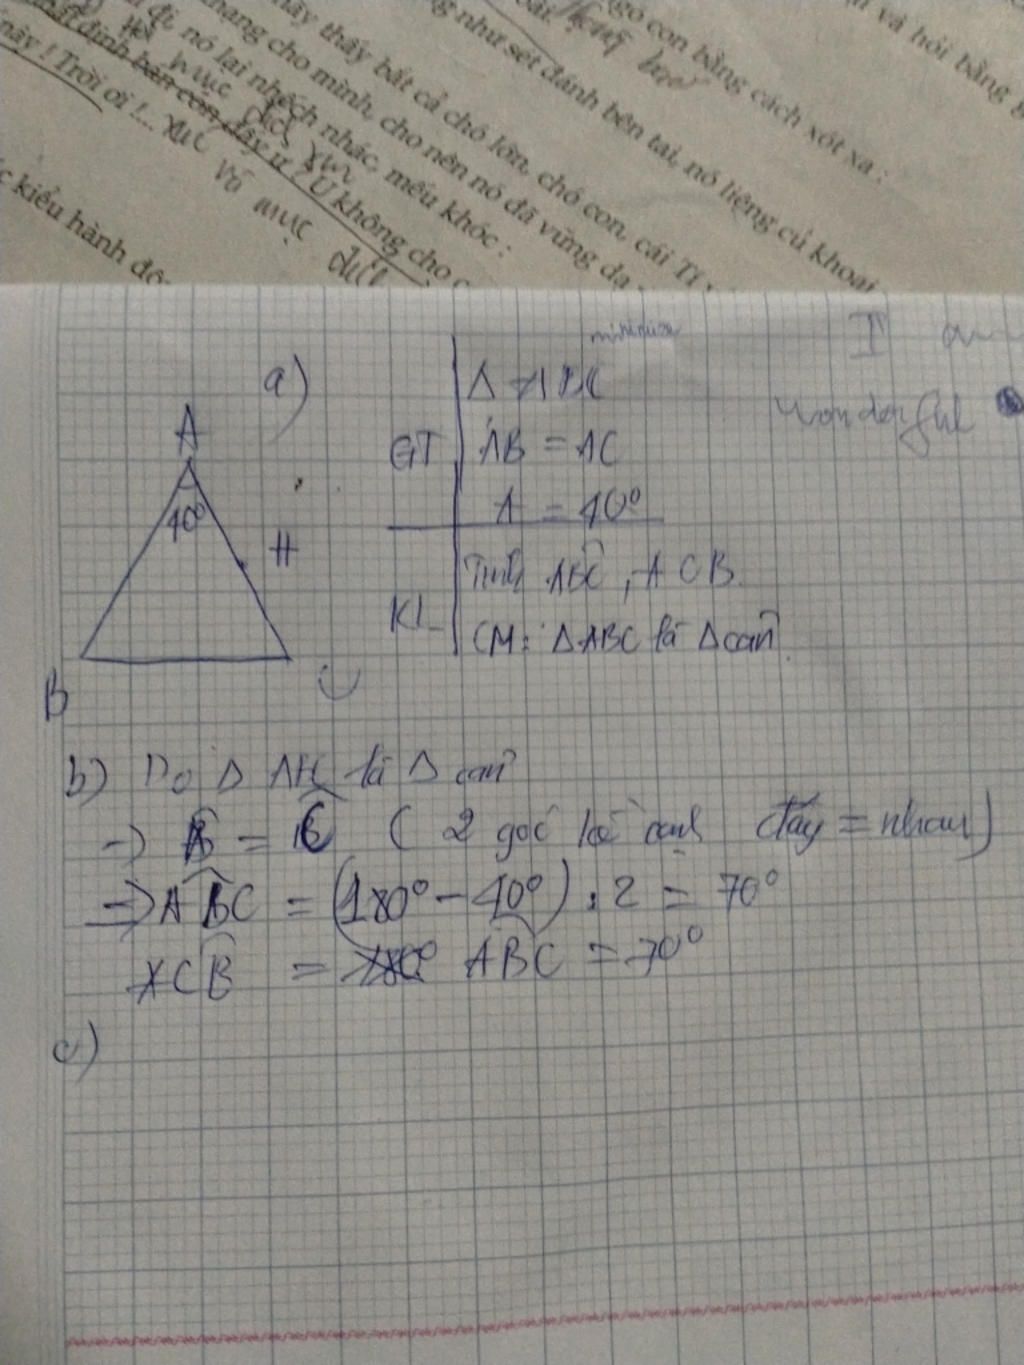 ngo con bằng cách xót xa :
u và hỏi bằng g
ng như sét đánh bên tai, nó liệng củ khoai
này thấy bắt cả chó lớn, chó con, cái Tí
mang cho mình, cho nên nó đã vững dạ
đi, nó lại nhếch nhác, mếu khóc :
nhất định bán con đấy ư ? U không cho c
này ! Trời ơi !...
c kiểu hành độ
mục đích
vụ
mục
đích
minimize
I a
wonderful
a)
A
40°
H
B
C
GT
Δ ABC
AB = AC
A = 40°
KL
Tính ABC , ACB
CM : Δ ABC là Δ cân
b) Do Δ ABC là Δ cân
→ B = C ( 2 góc kề cạnh đáy = nhau )
→ ABC = (180° - 40°) : 2 = 70°
ACB = ABC = 70°
c)